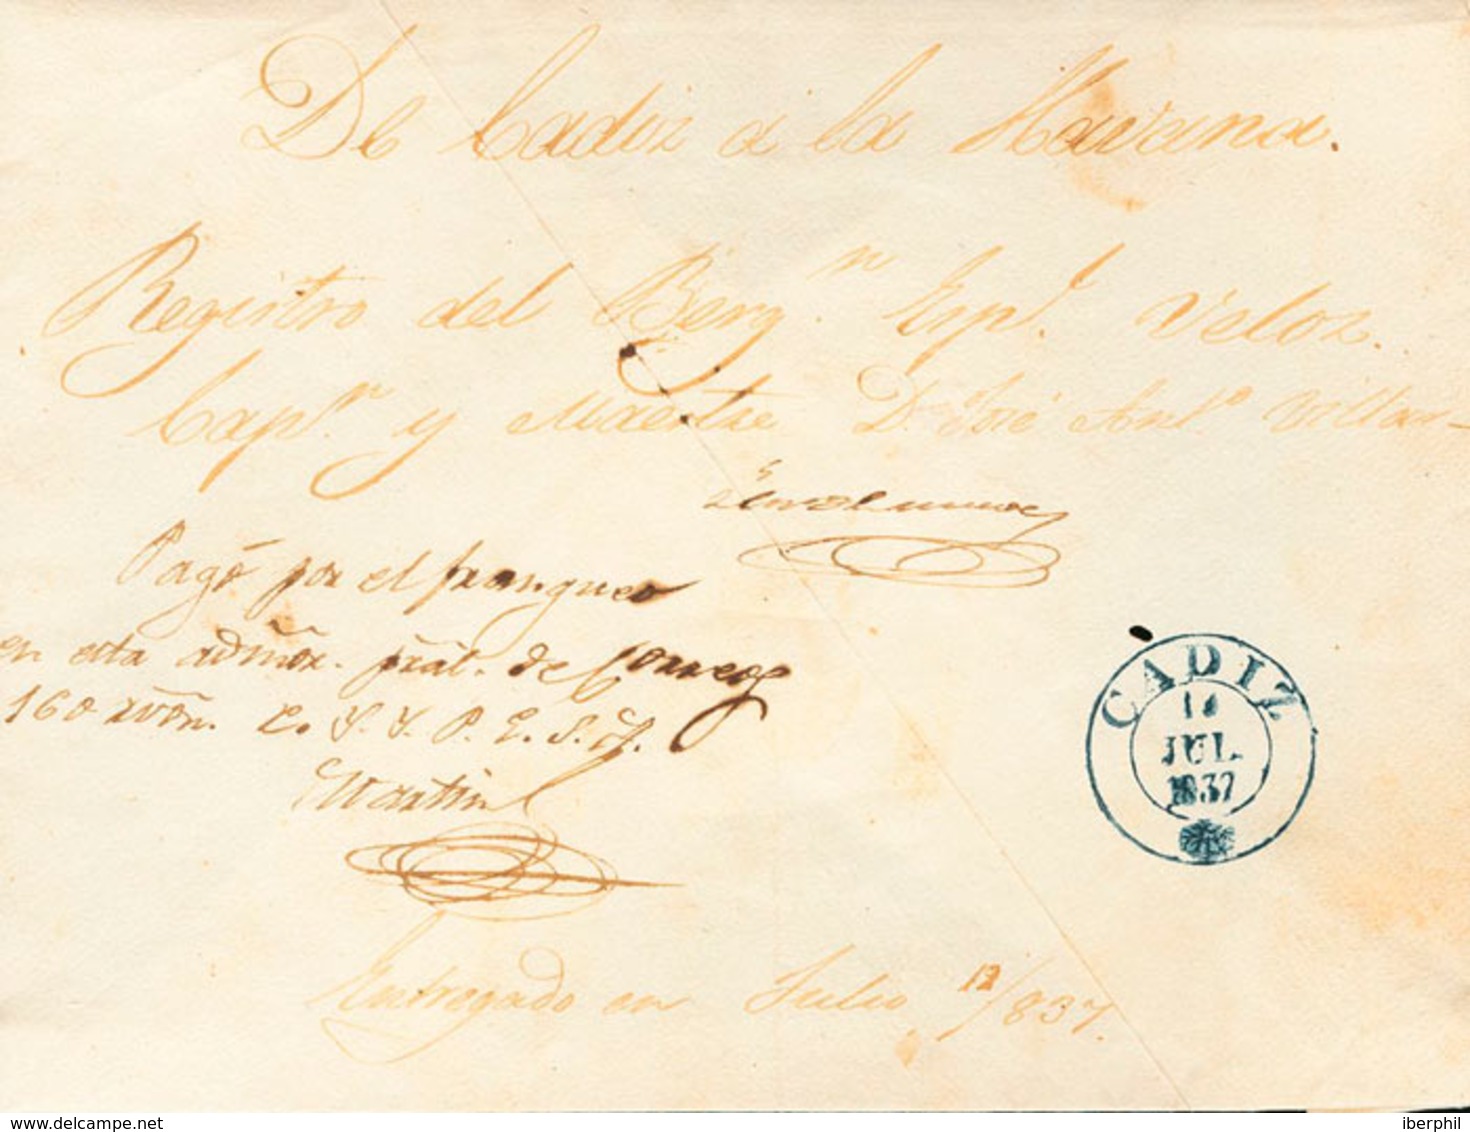 De Cadiz a la Havana.
Registro del Berg.n Esp.l Veloz.
Cap.n y Maestre D. José Ant.o Villar-
Pagó por el franqueo
en esta admõn. prãl. de Correos
160 rvõn.
Martinez
CADIZ
JUL.
1837
Entregado en Julio 12/837.
delcampe.net
iberphil